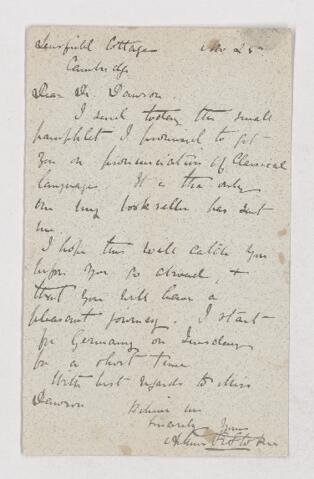 Lensfield Cottage Nov 25th
Cambridge
Dear Dr. Dawson
I send today the small
pamphlet I promised to get
you on pronunciation of Classical
languages. It is the only
one my bookseller has sent
me.
I hope this will catch you
before you go abroad, &
that you will have a
pleasant journey. I start
for Germany on Tuesday
for a short time
With best regards to Miss
Dawson
Believe me
Sincerely Yours
Arthur